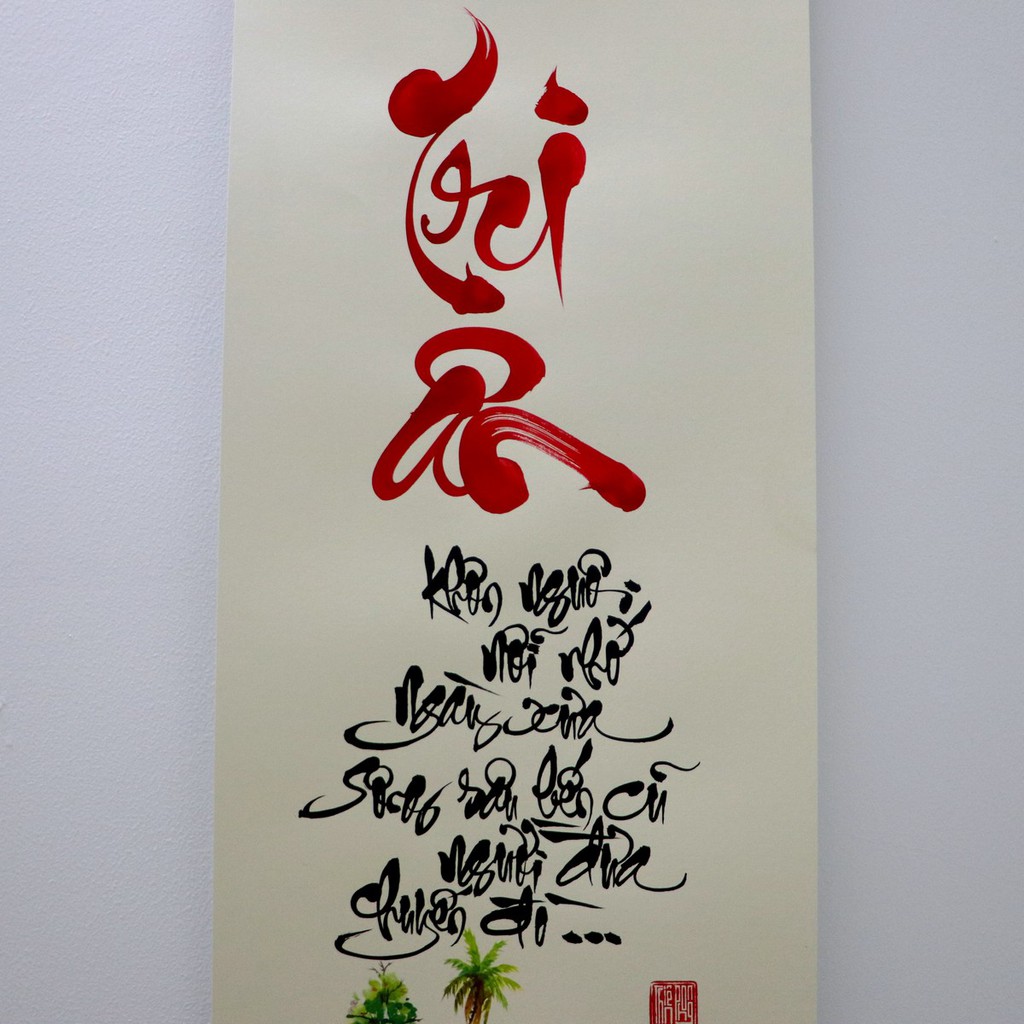 Tri
Ân
Khôn nguôi
nỗi nhớ
ngày xưa
Sông sâu bến cũ
người đưa
chuyến đò ...